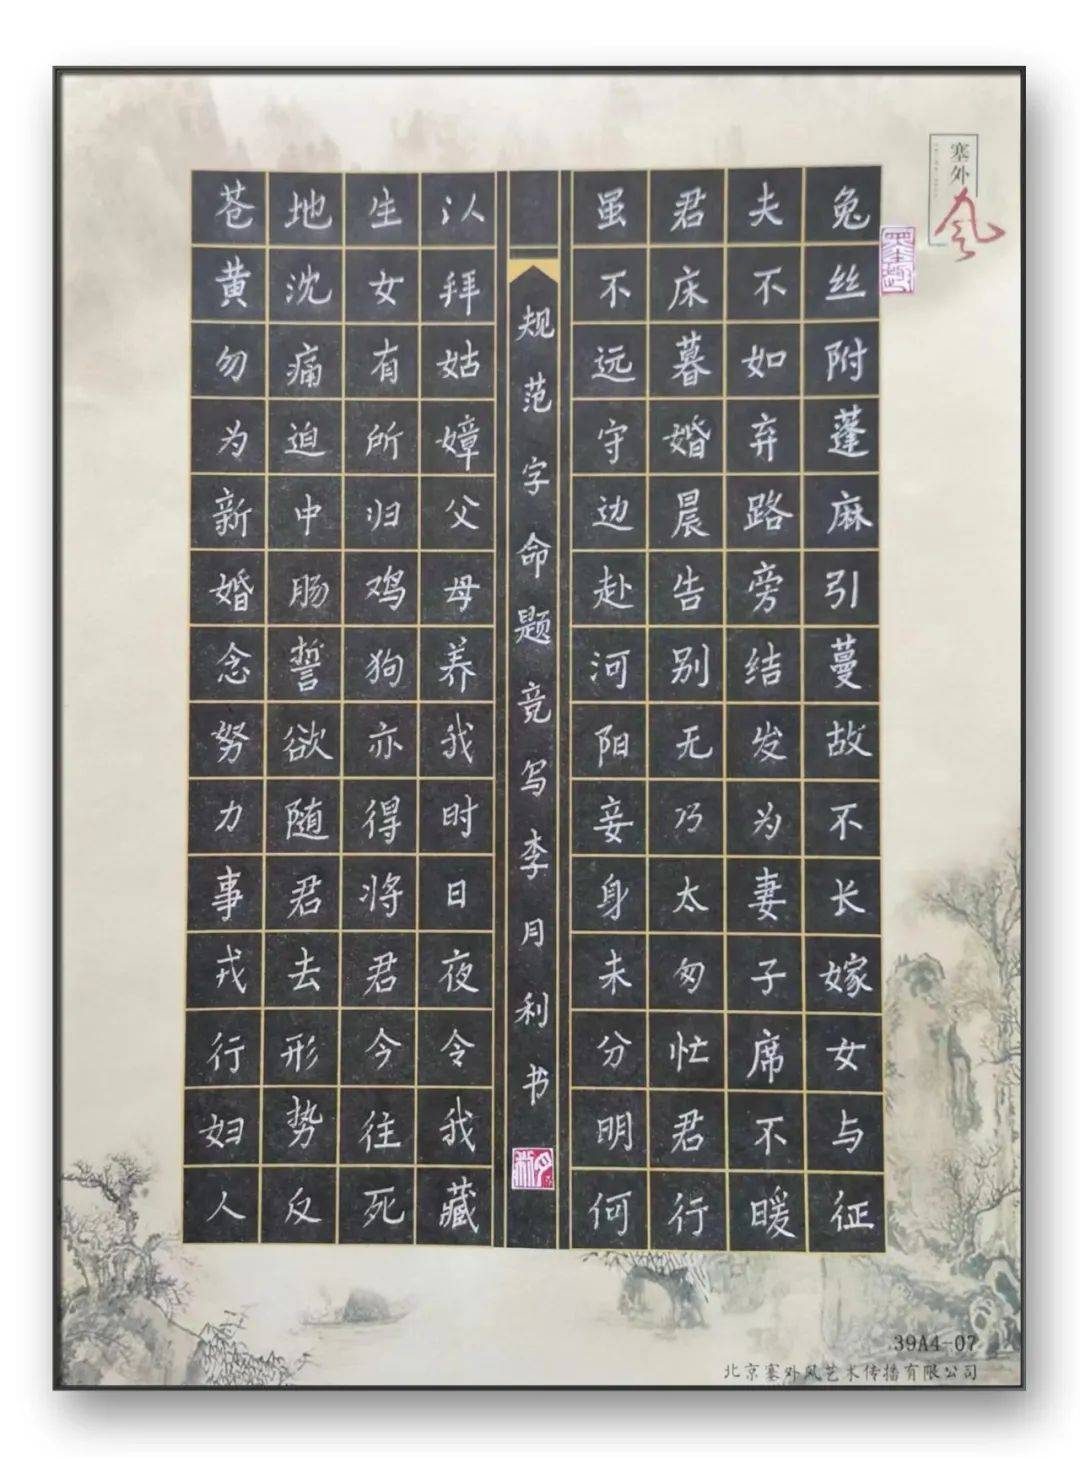 塞外
风
兔丝附蓬麻引蔓故不长嫁女与征
夫不如弃路旁结发为妻子席不暖
君床暮婚晨告别无巧太匆忙君行
虽不远守边赴河阳妾身未分明何
规范字命题竞写李月利书
以拜姑嫜父母养我时日夜令我藏
生女有所归鸡狗亦得将君今往死
地沈痛迫中肠誓欲随君去形势反
苍黄勿为新婚念努力事戎行妇人
39A4-07
北京塞外风艺术传播有限公司